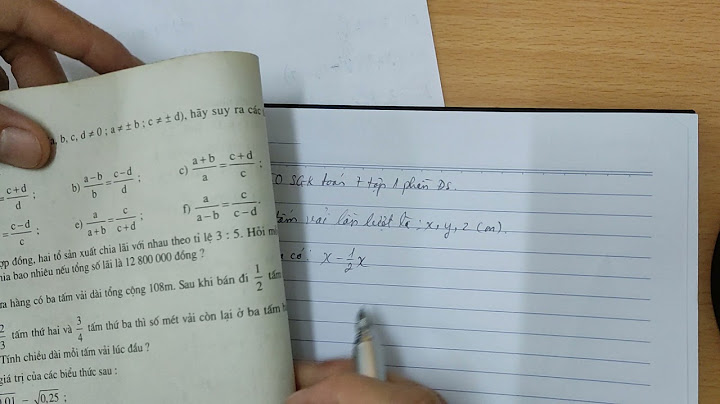 b, c, d ≠ 0 ; a ≠ ± b ; c ≠ ± d), hãy suy ra các
c+d/d ; b) a−b/b = c−d/d ; c) a+b/a = c+d/c ;
= c−d/c ; e) a/a+b = c/c+d ; f) a/a−b = c/c−d .
ợp đồng, hai tổ sản xuất chia lãi với nhau theo tỉ lệ 3 : 5. Hỏi
hia bao nhiêu nếu tổng số lãi là 12 800 000 đồng ?
a hàng có ba tấm vải dài tổng cộng 108m. Sau khi bán đi 1/2 tấm
2/3 tấm thứ hai và 3/4 tấm thứ ba thì số mét vải còn lại ở ba tấm
Tính chiều dài mỗi tấm vải lúc đầu ?
giá trị của các biểu thức sau :
0,01 − √0,25 ;
0 SGK toán 7 tập 1 phần DS.
tấm vải lần lượt là : x, y, z (m).
có : x − 1/2 x